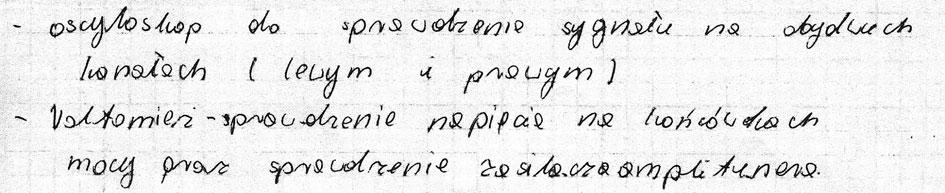 - oscyloskop do sprawdzenie sygnału na obydwuch
kanałach (lewym i prawym)
- Voltomierz - sprawdzenie napięcie na końcówkach
mocy oraz sprawdzenie zasilacza amplitunera.